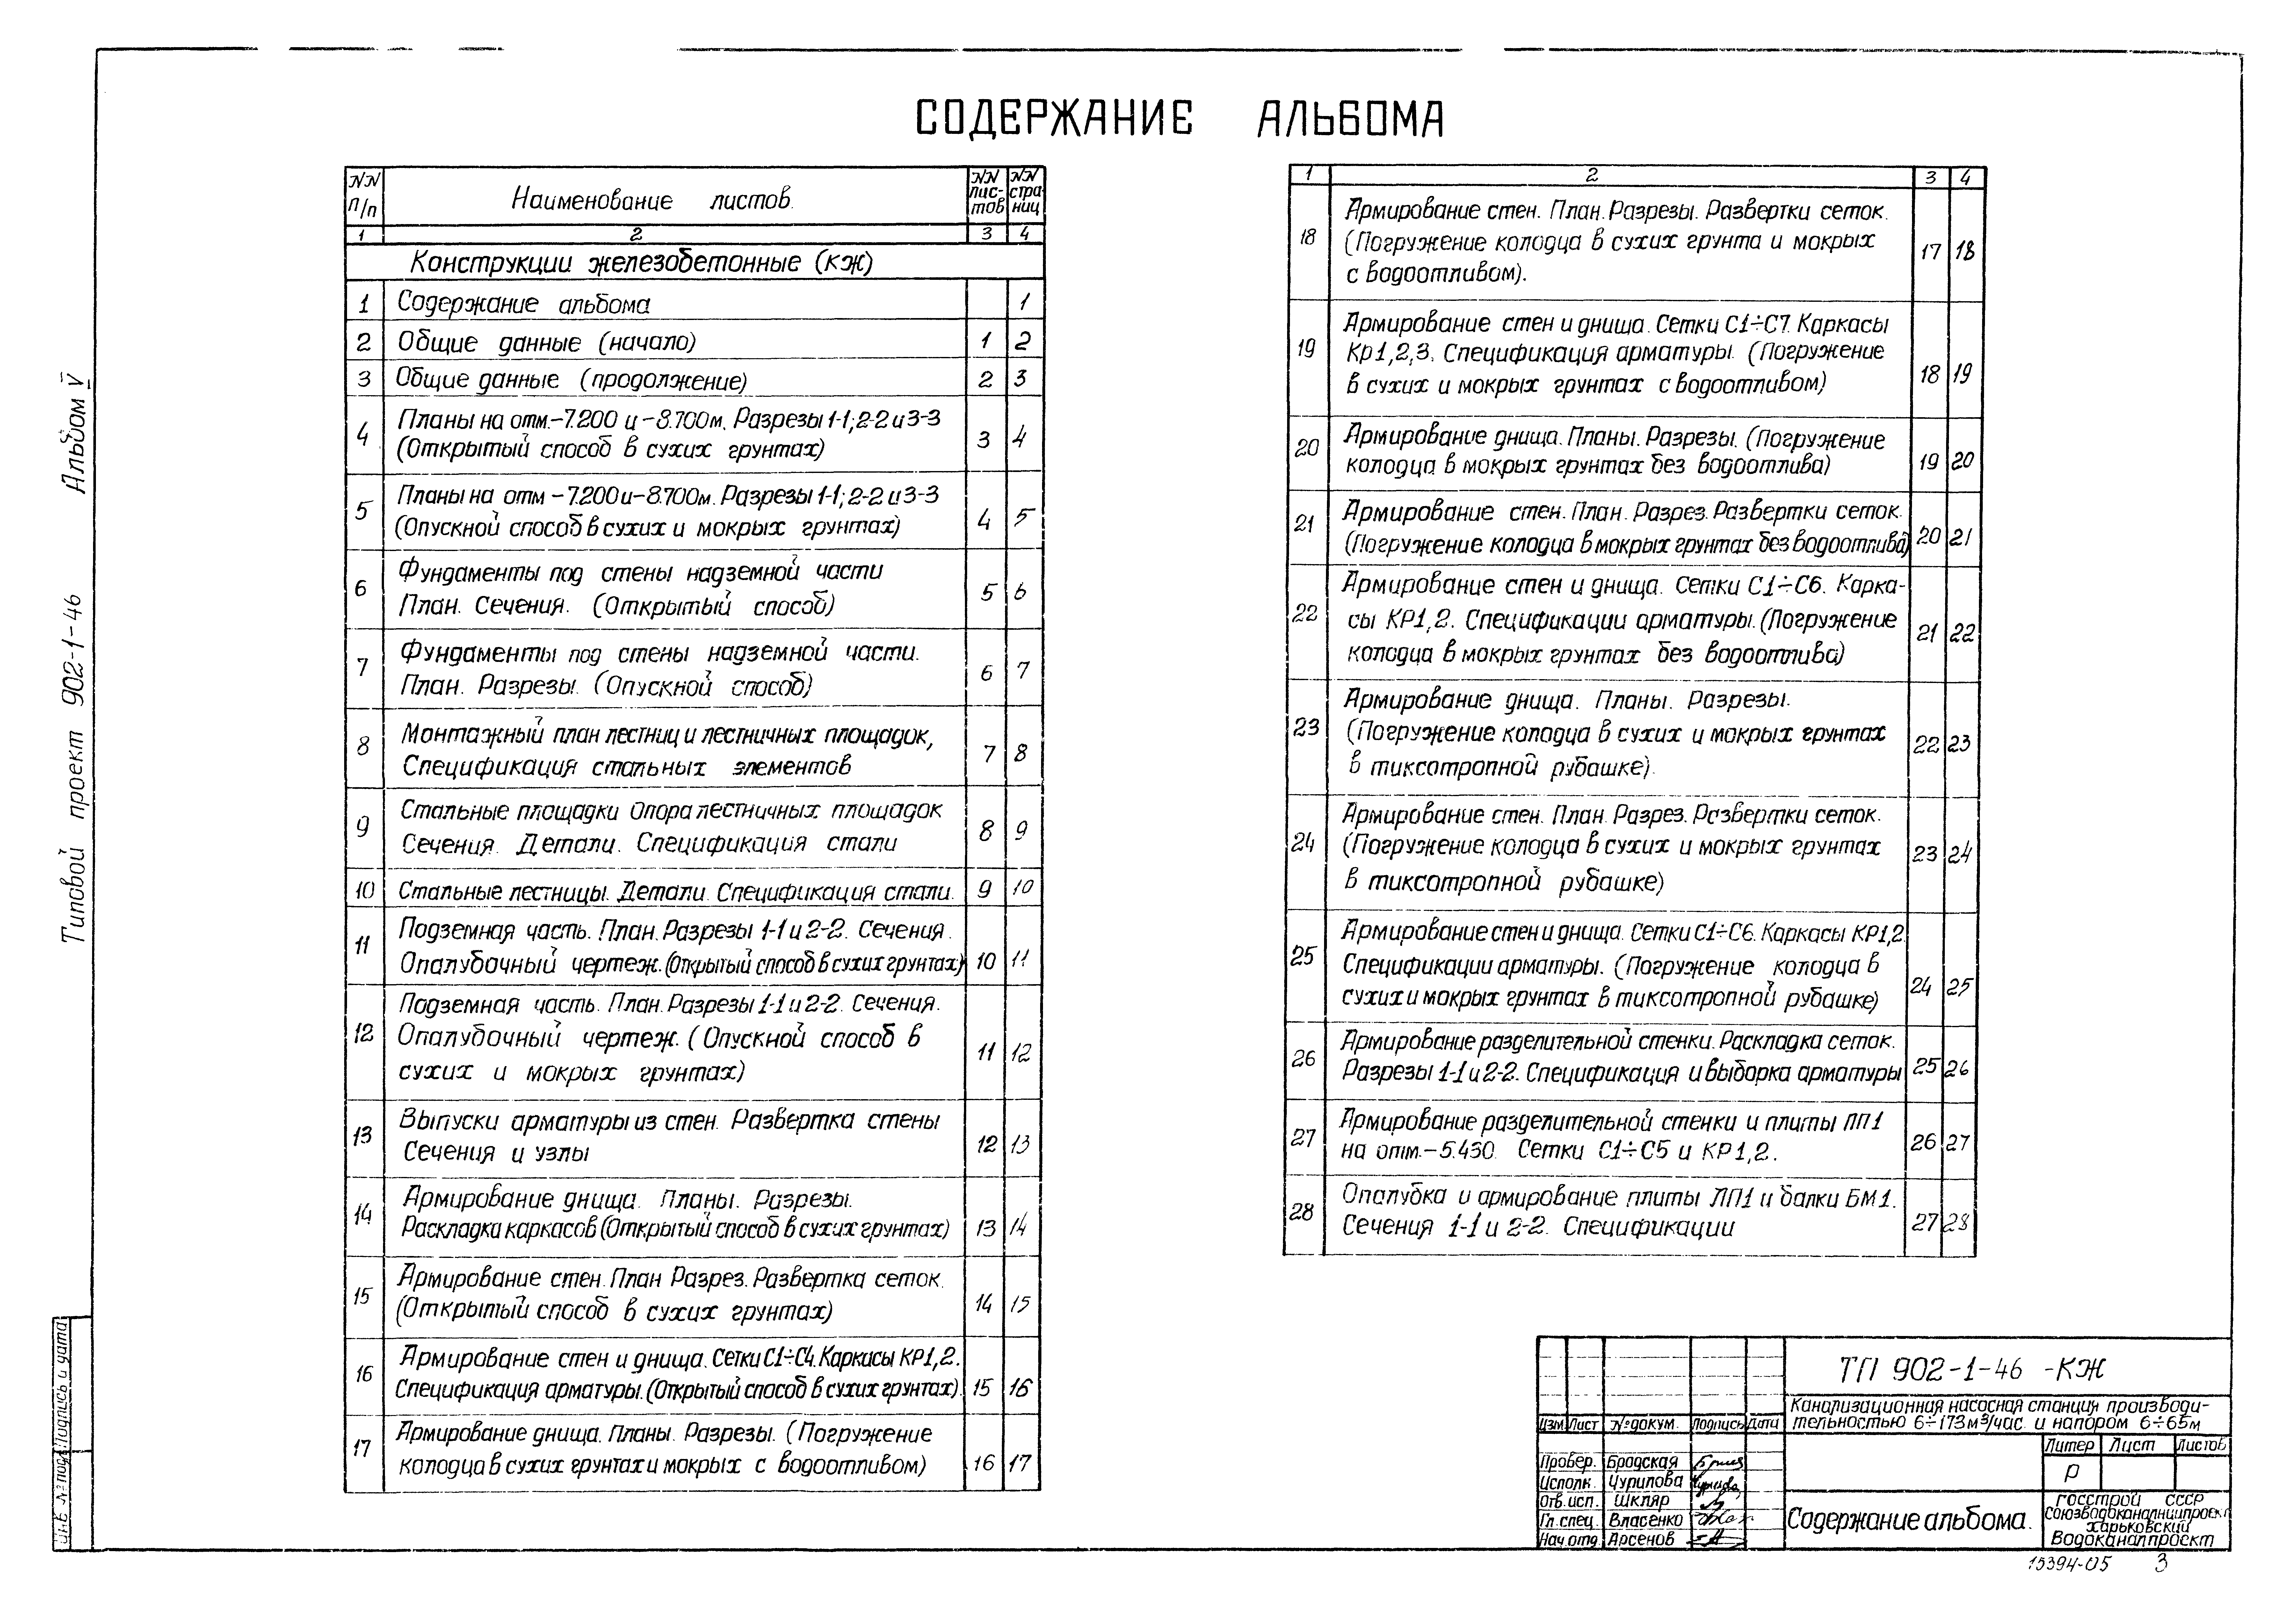 СОДЕРЖАНИЕ АЛЬБОМА
Типовой проект 902-1-46 Альбом V
NN п/п Наименование листов. NN лис-тов NN стра-ниц
1 2 3 4
Конструкции железобетонные (КЖ)
1 Содержание альбома 1
2 Общие данные (начало) 1 2
3 Общие данные (продолжение) 2 3
4 Планы на отм.-7.200 и -8.700м. Разрезы 1-1; 2-2 и 3-3
(Открытый способ в сухих грунтах) 3 4
5 Планы на отм -7.200 и -8.700м. Разрезы 1-1; 2-2 и 3-3
(Опускной способ в сухих и мокрых грунтах) 4 5
6 Фундаменты под стены надземной части
План. Сечения. (Открытый способ) 5 6
7 Фундаменты под стены надземной части.
План. Разрезы. (Опускной способ) 6 7
8 Монтажный план лестниц и лестничных площадок,
Спецификация стальных элементов 7 8
9 Стальные площадки Опора лестничных площадок
Сечения. Детали. Спецификация стали 8 9
10 Стальные лестницы. Детали. Спецификация стали. 9 10
11 Подземная часть. План. Разрезы 1-1 и 2-2. Сечения.
Опалубочный чертеж. (Открытый способ в сухих грунтах) 10 11
12 Подземная часть. План. Разрезы 1-1 и 2-2. Сечения.
Опалубочный чертеж. (Опускной способ в
сухих и мокрых грунтах) 11 12
13 Выпуски арматуры из стен. Развертка стены
Сечения и узлы 12 13
14 Армирование днища. Планы. Разрезы.
Раскладка каркасов (Открытый способ в сухих грунтах) 13 14
15 Армирование стен. План Разрез. Развертка сеток.
(Открытый способ в сухих грунтах) 14 15
16 Армирование стен и днища. Сетки С1÷С4. Каркасы КР1,2.
Спецификация арматуры. (Открытый способ в сухих грунтах). 15 16
17 Армирование днища. Планы. Разрезы. (Погружение
колодца в сухих грунтах и мокрых с водоотливом) 16 17
1 2 3 4
18 Армирование стен. План. Разрезы. Развертки сеток.
(Погружение колодца в сухих грунта и мокрых
с водоотливом). 17 18
19 Армирование стен и днища. Сетки С1÷С7. Каркасы
Кр1,2,3. Спецификация арматуры. (Погружение
в сухих и мокрых грунтах с водоотливом) 18 19
20 Армирование днища. Планы. Разрезы. (Погружение
колодца в мокрых грунтах без водоотлива) 19 20
21 Армирование стен. План. Разрез. Развертки сеток.
(Погружение колодца в мокрых грунтах без водоотлива) 20 21
22 Армирование стен и днища. Сетки С1÷С6. Карка-
сы КР1,2. Спецификации арматуры. (Погружение
колодца в мокрых грунтах без водоотлива) 21 22
23 Армирование днища. Планы. Разрезы.
(Погружение колодца в сухих и мокрых грунтах
в тиксотропной рубашке). 22 23
24 Армирование стен. План. Разрез. Развертки сеток.
(Погружение колодца в сухих и мокрых грунтах
в тиксотропной рубашке) 23 24
25 Армирование стен и днища. Сетки С1÷С6. Каркасы КР1,2.
Спецификации арматуры. (Погружение колодца в
сухих и мокрых грунтах в тиксотропной рубашке) 24 25
26 Армирование разделительной стенки. Раскладка сеток.
Разрезы 1-1 и 2-2. Спецификация и выборка арматуры 25 26
27 Армирование разделительной стенки и плиты ЛП1
на отм.-5.430. Сетки С1÷С5 и КР1,2. 26 27
28 Опалубка и армирование плиты ЛП1 и балки БМ1.
Сечения 1-1 и 2-2. Спецификации 27 28
Инв. № подл. Подпись и дата
ТП 902-1-46 -КЖ
Канализационная насосная станция производи-
тельностью 6÷173м³/час. и напором 6÷65м
Изм. Лист № докум. Подпись Дата
Литер Лист Листов
Р
Провер. Бродская
Исполк. Чурилова
Отв.исп. Шкляр
Гл.спец. Власенко
Нач.отд. Арсенов
Содержание альбома.
ГОССТРОЙ СССР
Союзводоканалниипроект
Харьковский
Водоканалпроект
15394-05 3